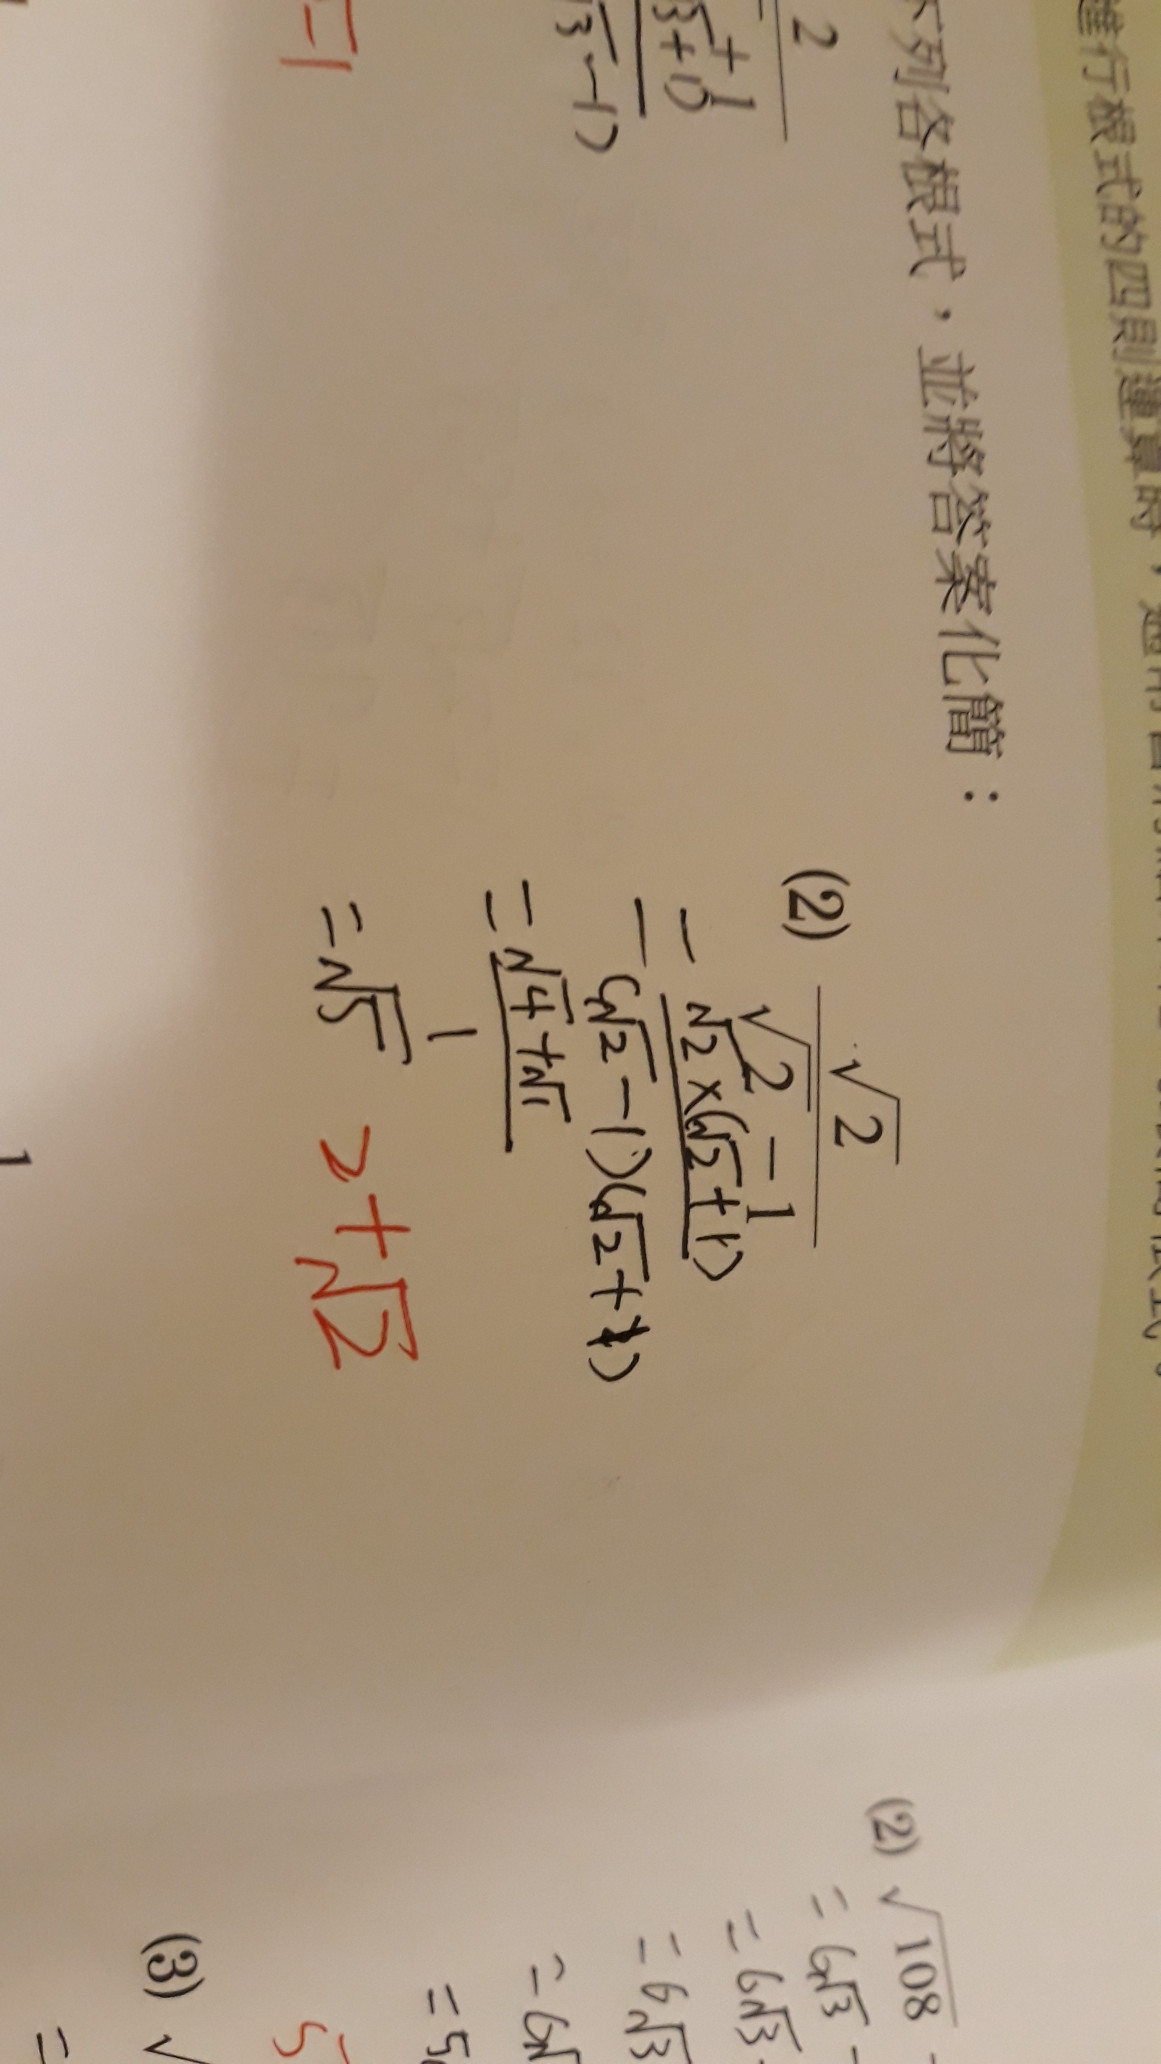 進行根式的四則運算時，通常會
下列各根式，並將答案化簡：
2
+1
3+1)
√3-1)
=1
(2) √2
√2-1
= √2×(√2+1)
(√2-1)(√2+1)
= √4+√1
1
= √5 2+√2
(2) √108
= 6√3 -
= 6√3
= 6√3
= 6√
= 5
5
(3) √
=
1